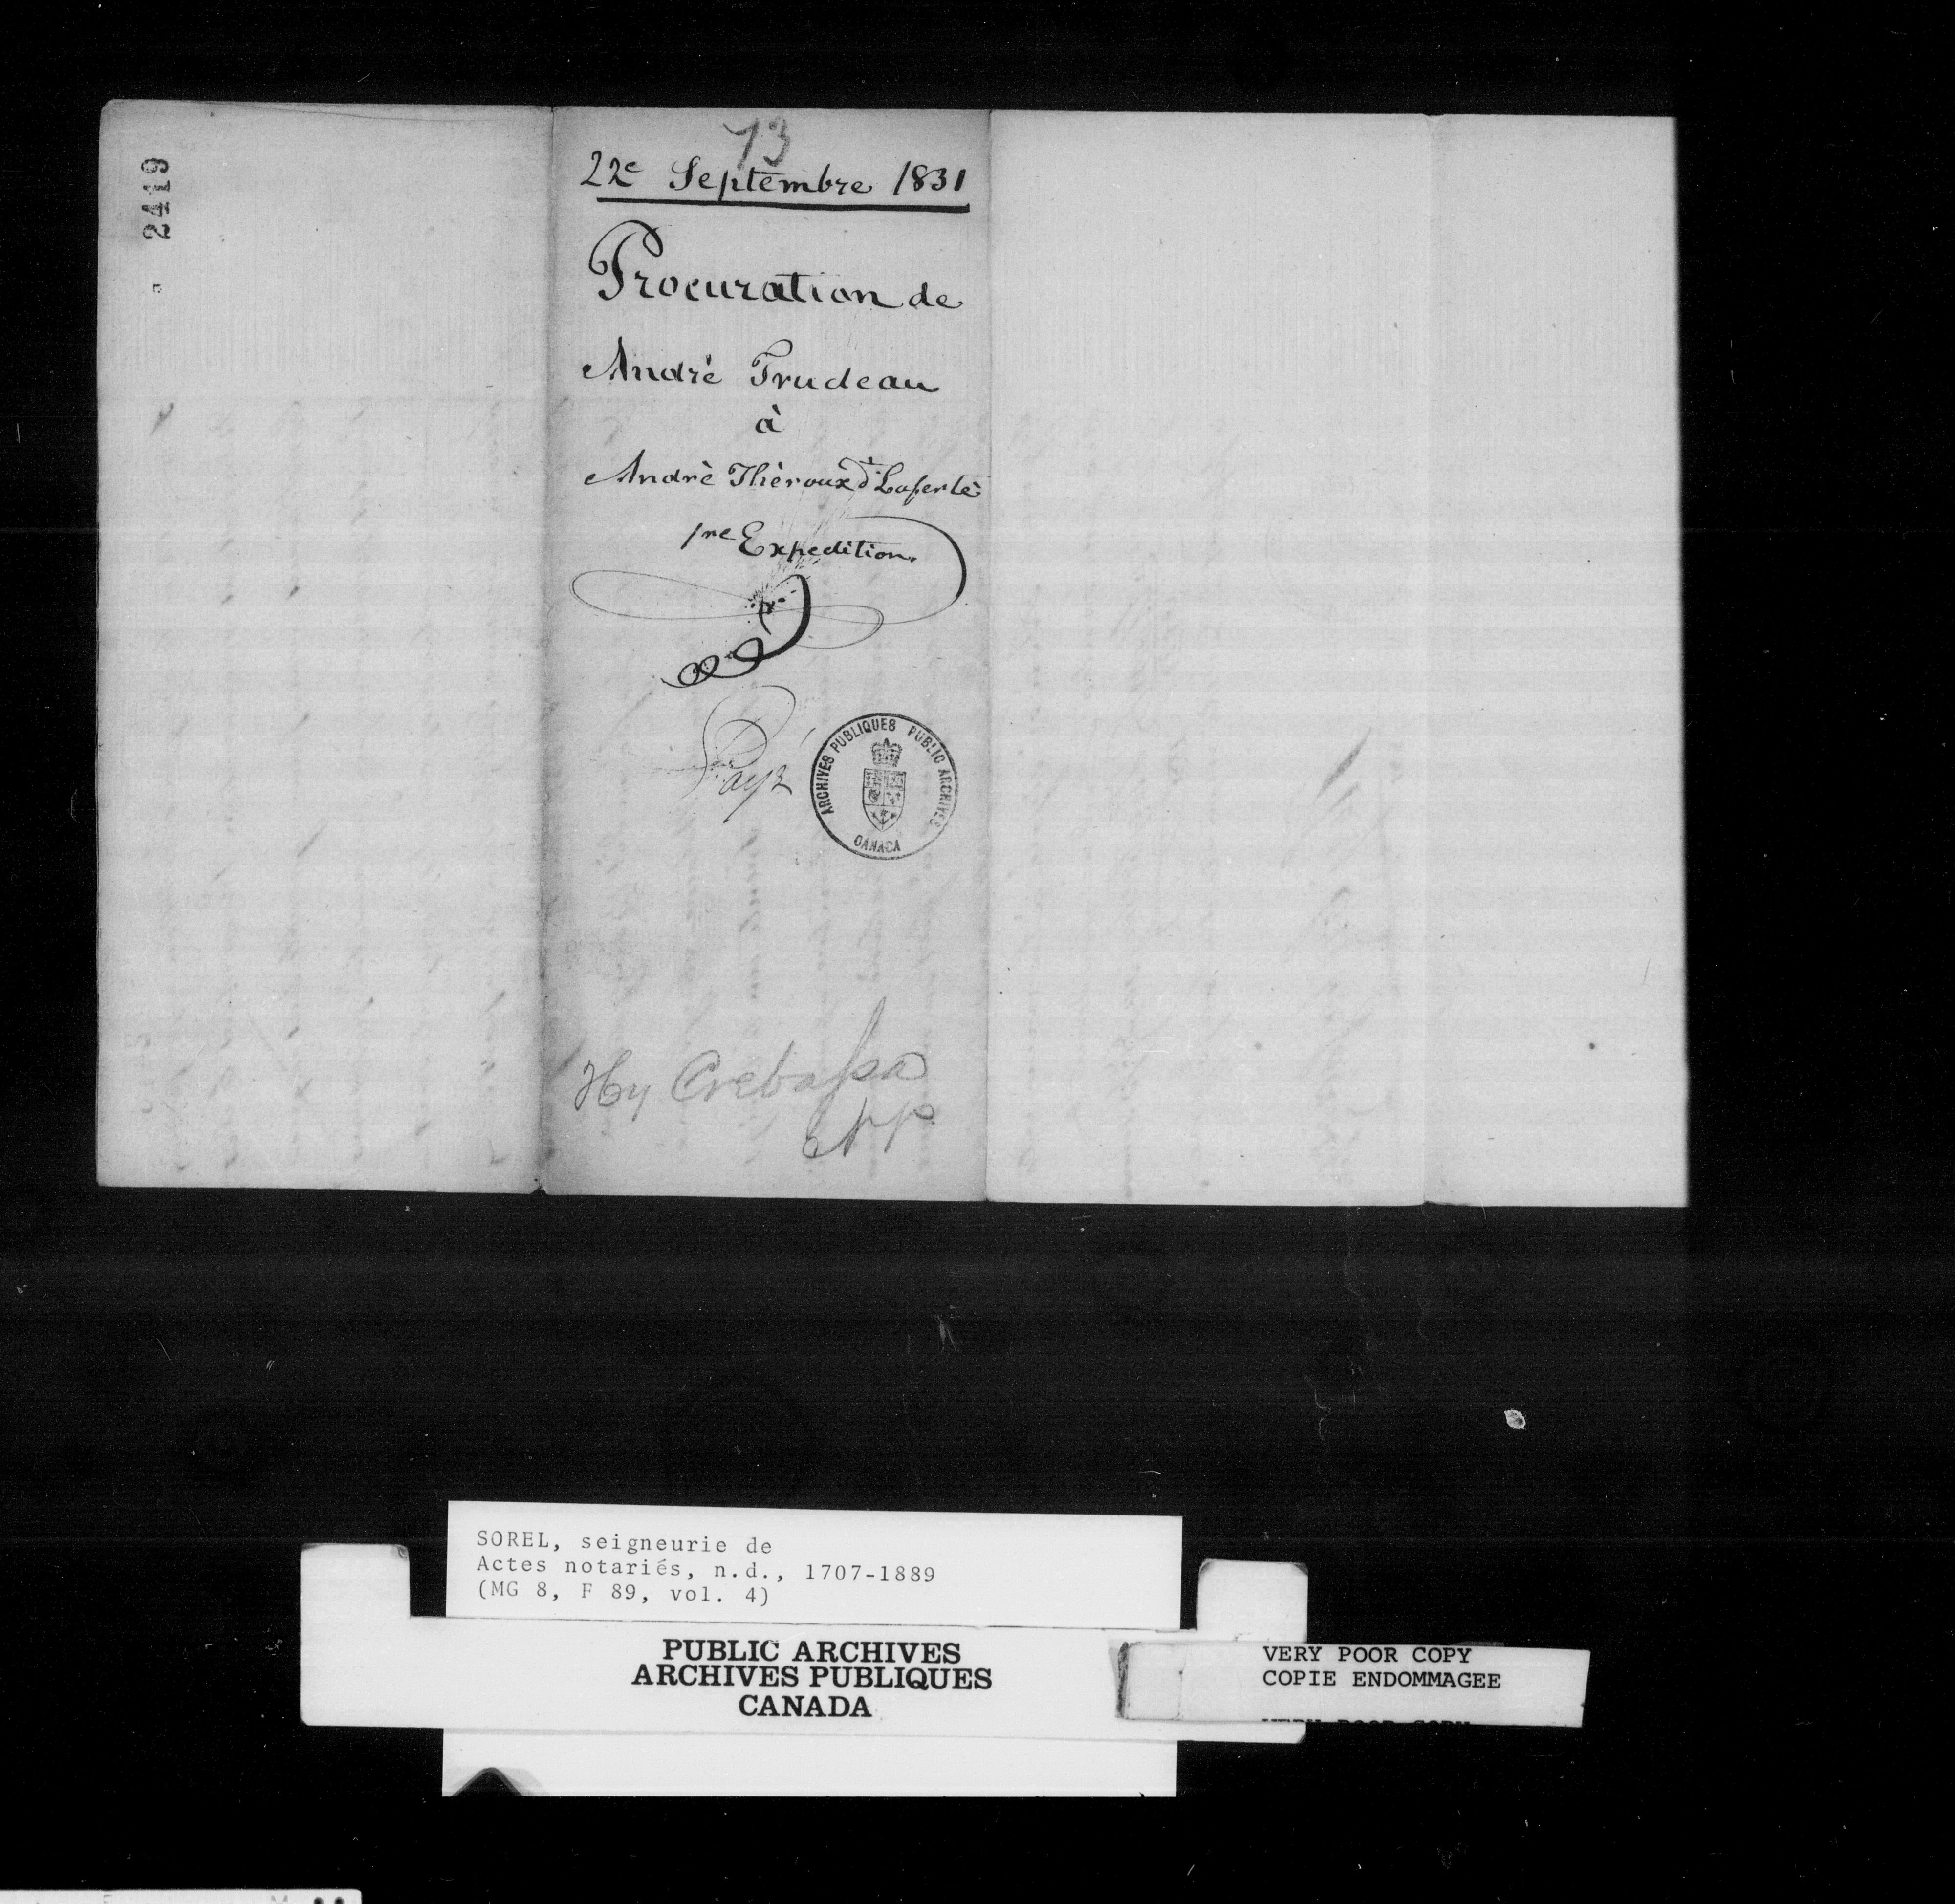 2419
73
22e Septembre 1831
Procuration de
André Trudeau
à
André Théroux dt Laferté
1re Expedition
Payé
ARCHIVES PUBLIQUES PUBLIC ARCHIVES
CANADA
Hy Crebassa
SOREL, seigneurie de
Actes notariés, n.d., 1707-1889
(MG 8, F 89, vol. 4)
PUBLIC ARCHIVES
ARCHIVES PUBLIQUES
CANADA
VERY POOR COPY
COPIE ENDOMMAGEE
VERY POOR COPY